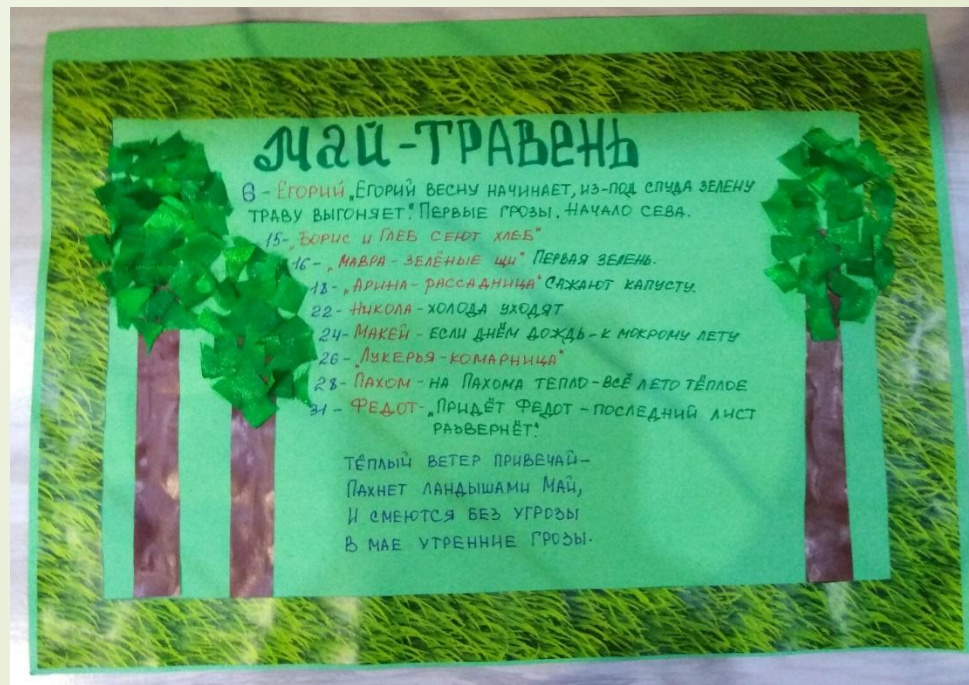 МАЙ-ТРАВЕНЬ
6 - ЕГОРИЙ „ЕГОРИЙ ВЕСНУ НАЧИНАЕТ, ИЗ-ПОД СПУДА ЗЕЛЕНУ
ТРАВУ ВЫГОНЯЕТ". ПЕРВЫЕ ГРОЗЫ. НАЧАЛО СЕВА.
15- „БОРИС И ГЛЕБ СЕЮТ ХЛЕБ"
16 - „МАВРА - ЗЕЛЁНЫЕ ЩИ" ПЕРВАЯ ЗЕЛЕНЬ.
18- „АРИНА-РАССАДНИЦА" САЖАЮТ КАПУСТУ.
22- НИКОЛА - ХОЛОДА УХОДЯТ
24- МАКЕЙ - ЕСЛИ ДНЁМ ДОЖДЬ - К МОКРОМУ ЛЕТУ
26 - „ЛУКЕРЬЯ - КОМАРНИЦА"
28- ПАХОМ - НА ПАХОМА ТЕПЛО - ВСЁ ЛЕТО ТЁПЛОЕ
31 - ФЕДОТ- „ПРИДЁТ ФЕДОТ - ПОСЛЕДНИЙ ЛИСТ
РАЗВЕРНЁТ".
ТЁПЛЫЙ ВЕТЕР ПРИВЕЧАЙ-
ПАХНЕТ ЛАНДЫШАМИ МАЙ,
И СМЕЮТСЯ БЕЗ УГРОЗЫ
В МАЕ УТРЕННИЕ ГРОЗЫ.